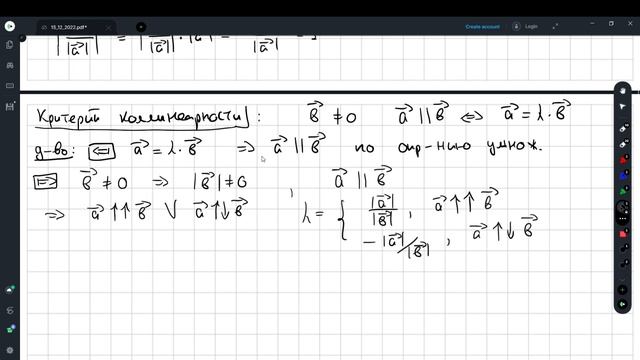 15_12_2022.pdf*
Create account
Login
|a⃗| = |a⃗| · |a⃗| = |a⃗|
Критерий коллинеарности: b⃗ ≠ 0 a⃗ || b⃗ ⇔ a⃗ = λ · b⃗
д-во: ⇐ a⃗ = λ · b⃗ ⇒ a⃗ || b⃗ по опр-нию умнож.
⇒ b⃗ ≠ 0 ⇒ |b⃗| ≠ 0, a⃗ || b⃗
⇒ a⃗ ↑↑ b⃗ ∨ a⃗ ↑↓ b⃗ λ = { |a⃗|/|b⃗|, a⃗ ↑↑ b⃗
− |a⃗|/|b⃗|, a⃗ ↑↓ b⃗